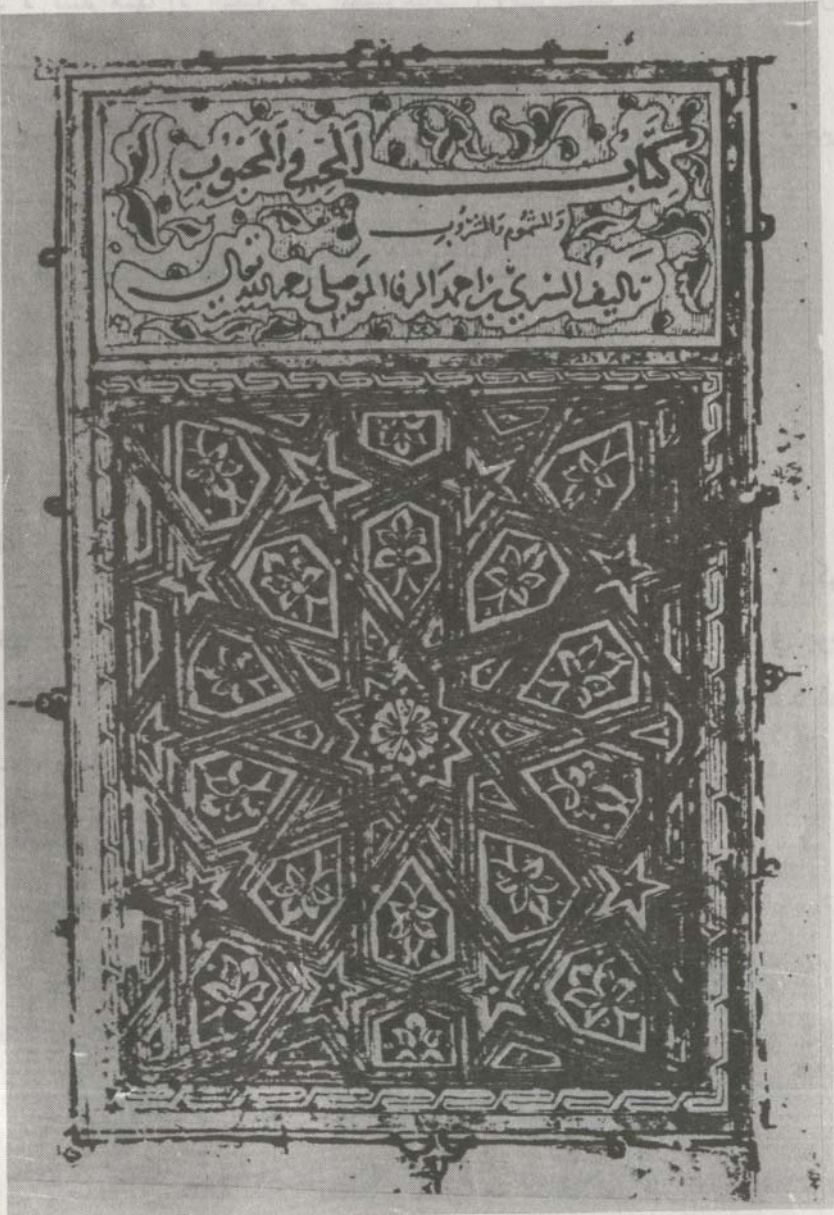 كتاب المحب والمحبوب
والمشموم والمشروب
تاليف السري بن احمد الرفا الموصلي رحمه الله تعالى